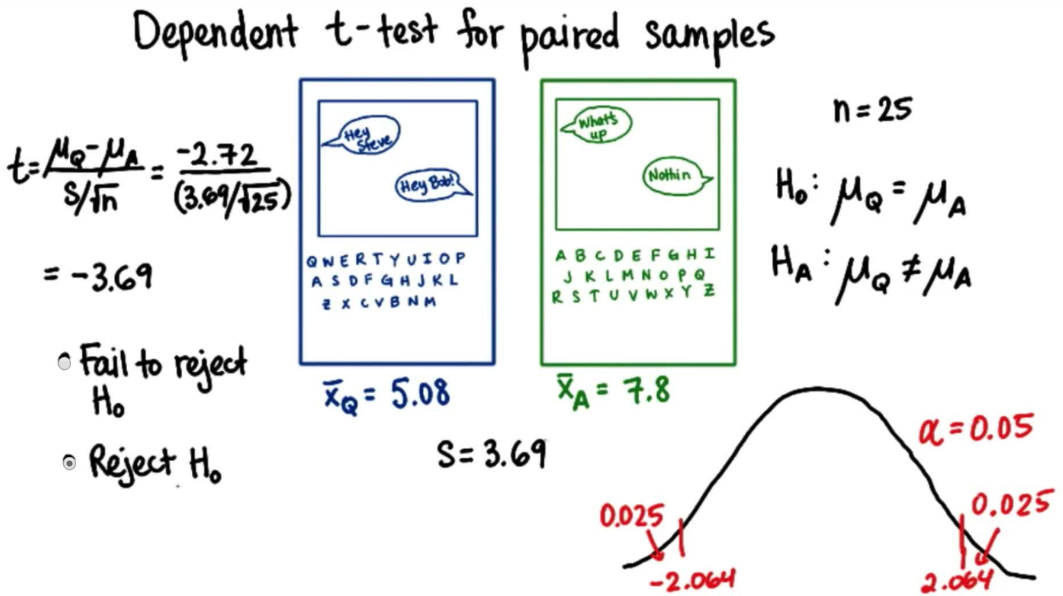 Dependent t-test for paired samples
t = μQ-μA / S/√n = -2.72 / (3.69/√25)
= -3.69
Fail to reject
H₀
Reject H₀
Hey
Steve
Hey Bob!
Q W E R T Y U I O P
A S D F G H J K L
Z X C V B N M
x̄Q = 5.08
What's
up
Nothin
A B C D E F G H I
J K L M N O P Q
R S T U V W X Y Z
x̄A = 7.8
S = 3.69
n = 25
H₀: μQ = μA
HA: μQ ≠ μA
α = 0.05
0.025
0.025
-2.064
2.064